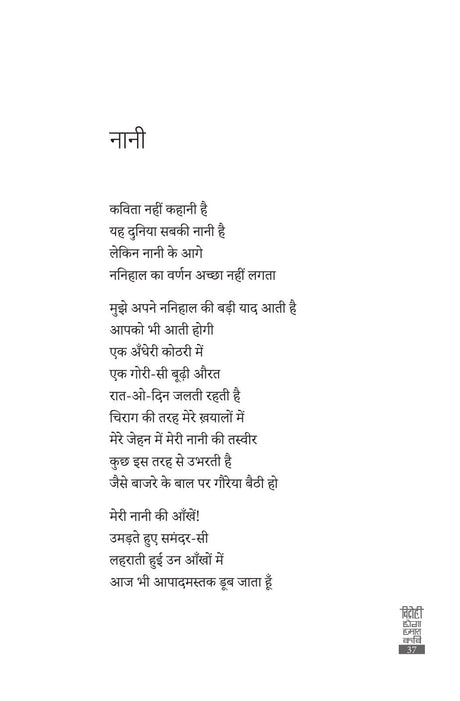 नानी
कविता नहीं कहानी है
यह दुनिया सबकी नानी है
लेकिन नानी के आगे
ननिहाल का वर्णन अच्छा नहीं लगता
मुझे अपने ननिहाल की बड़ी याद आती है
आपको भी आती होगी
एक अँधेरी कोठरी में
एक गोरी-सी बूढ़ी औरत
रात-ओ-दिन जलती रहती है
चिराग की तरह मेरे ख़यालों में
मेरे जेहन में मेरी नानी की तस्वीर
कुछ इस तरह से उभरती है
जैसे बाजरे के बाल पर गौरेया बैठी हो
मेरी नानी की आँखें!
उमड़ते हुए समंदर-सी
लहराती हुई उन आँखों में
आज भी आपादमस्तक डूब जाता हूँ
विद्रोही
होगा
हमारा
कवि
37